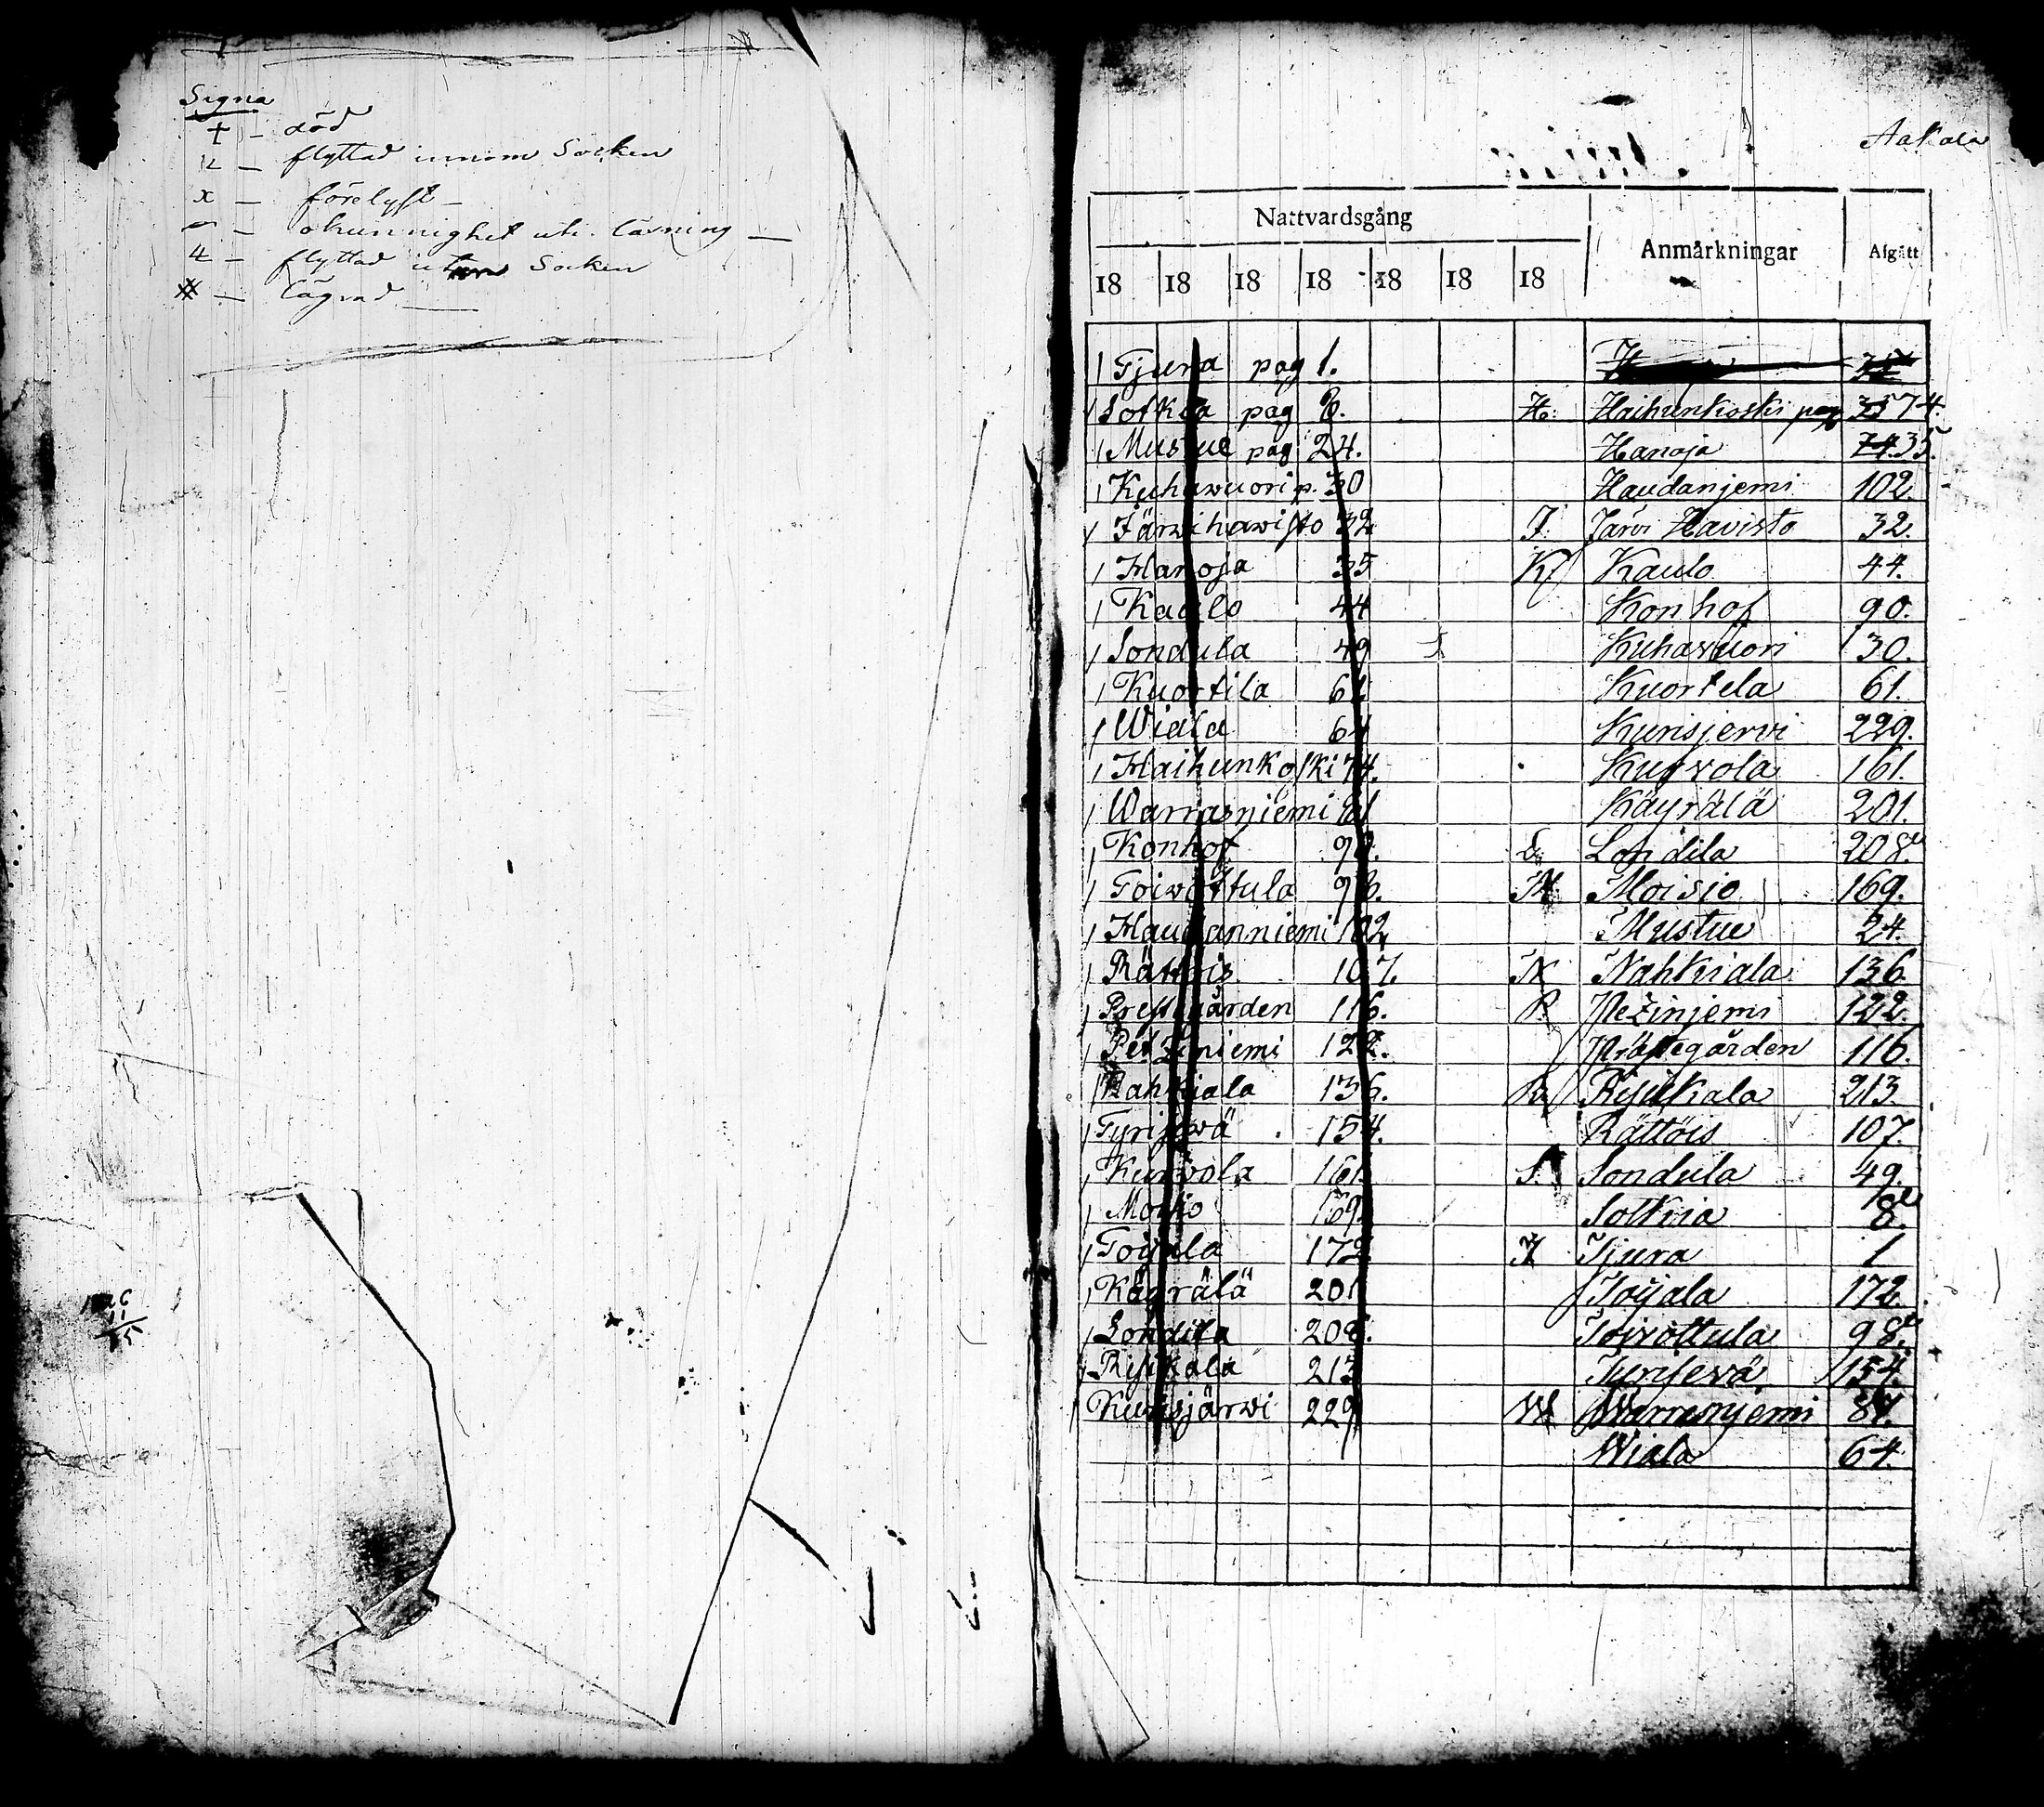 Signa
† – död
– flyttad innom Socken
x – förelyst –
– okunnighet uti läsning –
– flyttad utom Socken
– lägrad –
Aakala
Nattvardsgång
Anmärkningar
Afgått
18 18 18 18 18 18 18
Tjura pag 1.
Sotkia pag 8. H. Haihunkoski pag 74.
Mustue pag 24. Hanoja 35.
Kuhawuori p. 30 Haudanjemi 102.
Järwihawisto 32 J. Järvi Havisto 32.
Hanoja 35 K Kaulo 44.
Kaulo 44 Konhof 90.
Sondula 49 Kuhavuori 30.
Kuortila 61 Kuortela 61.
Wiala 64 Kurisjervi 229.
Haihunkoski 74. Kurvola 161.
Warrasniemi 81 Käyrälä 201.
Konhof 90. L. Londila 208.
Toiwottula 98. M Moisio 169.
Haudanniemi 102 Mustue 24.
Rättöis 107. N Nahkiala 136.
Prestgården 116. P. Pezinjemi 122.
Petziniemi 122. Prästegården 116.
Nahkiala 136. R Rysikala 213.
Tyrisewä 154. Rättöis 107.
Kurvola 161. S. Sondula 49.
Moisio 169. Sotkia 8.
Toijala 172 T Tjura 1
Käyrälä 201 Toijala 172.
Londila 208. Toivottula 98.
Rysikala 213 Turisevä 154.
Kurisjärwi 229 W Warrasnjemi 81.
Wiala 64.